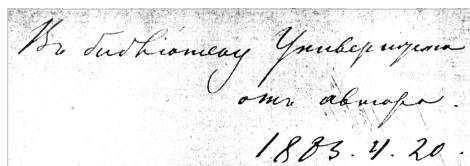 Въ библіотеку Университета
отъ автора.
1883. 4. 20.